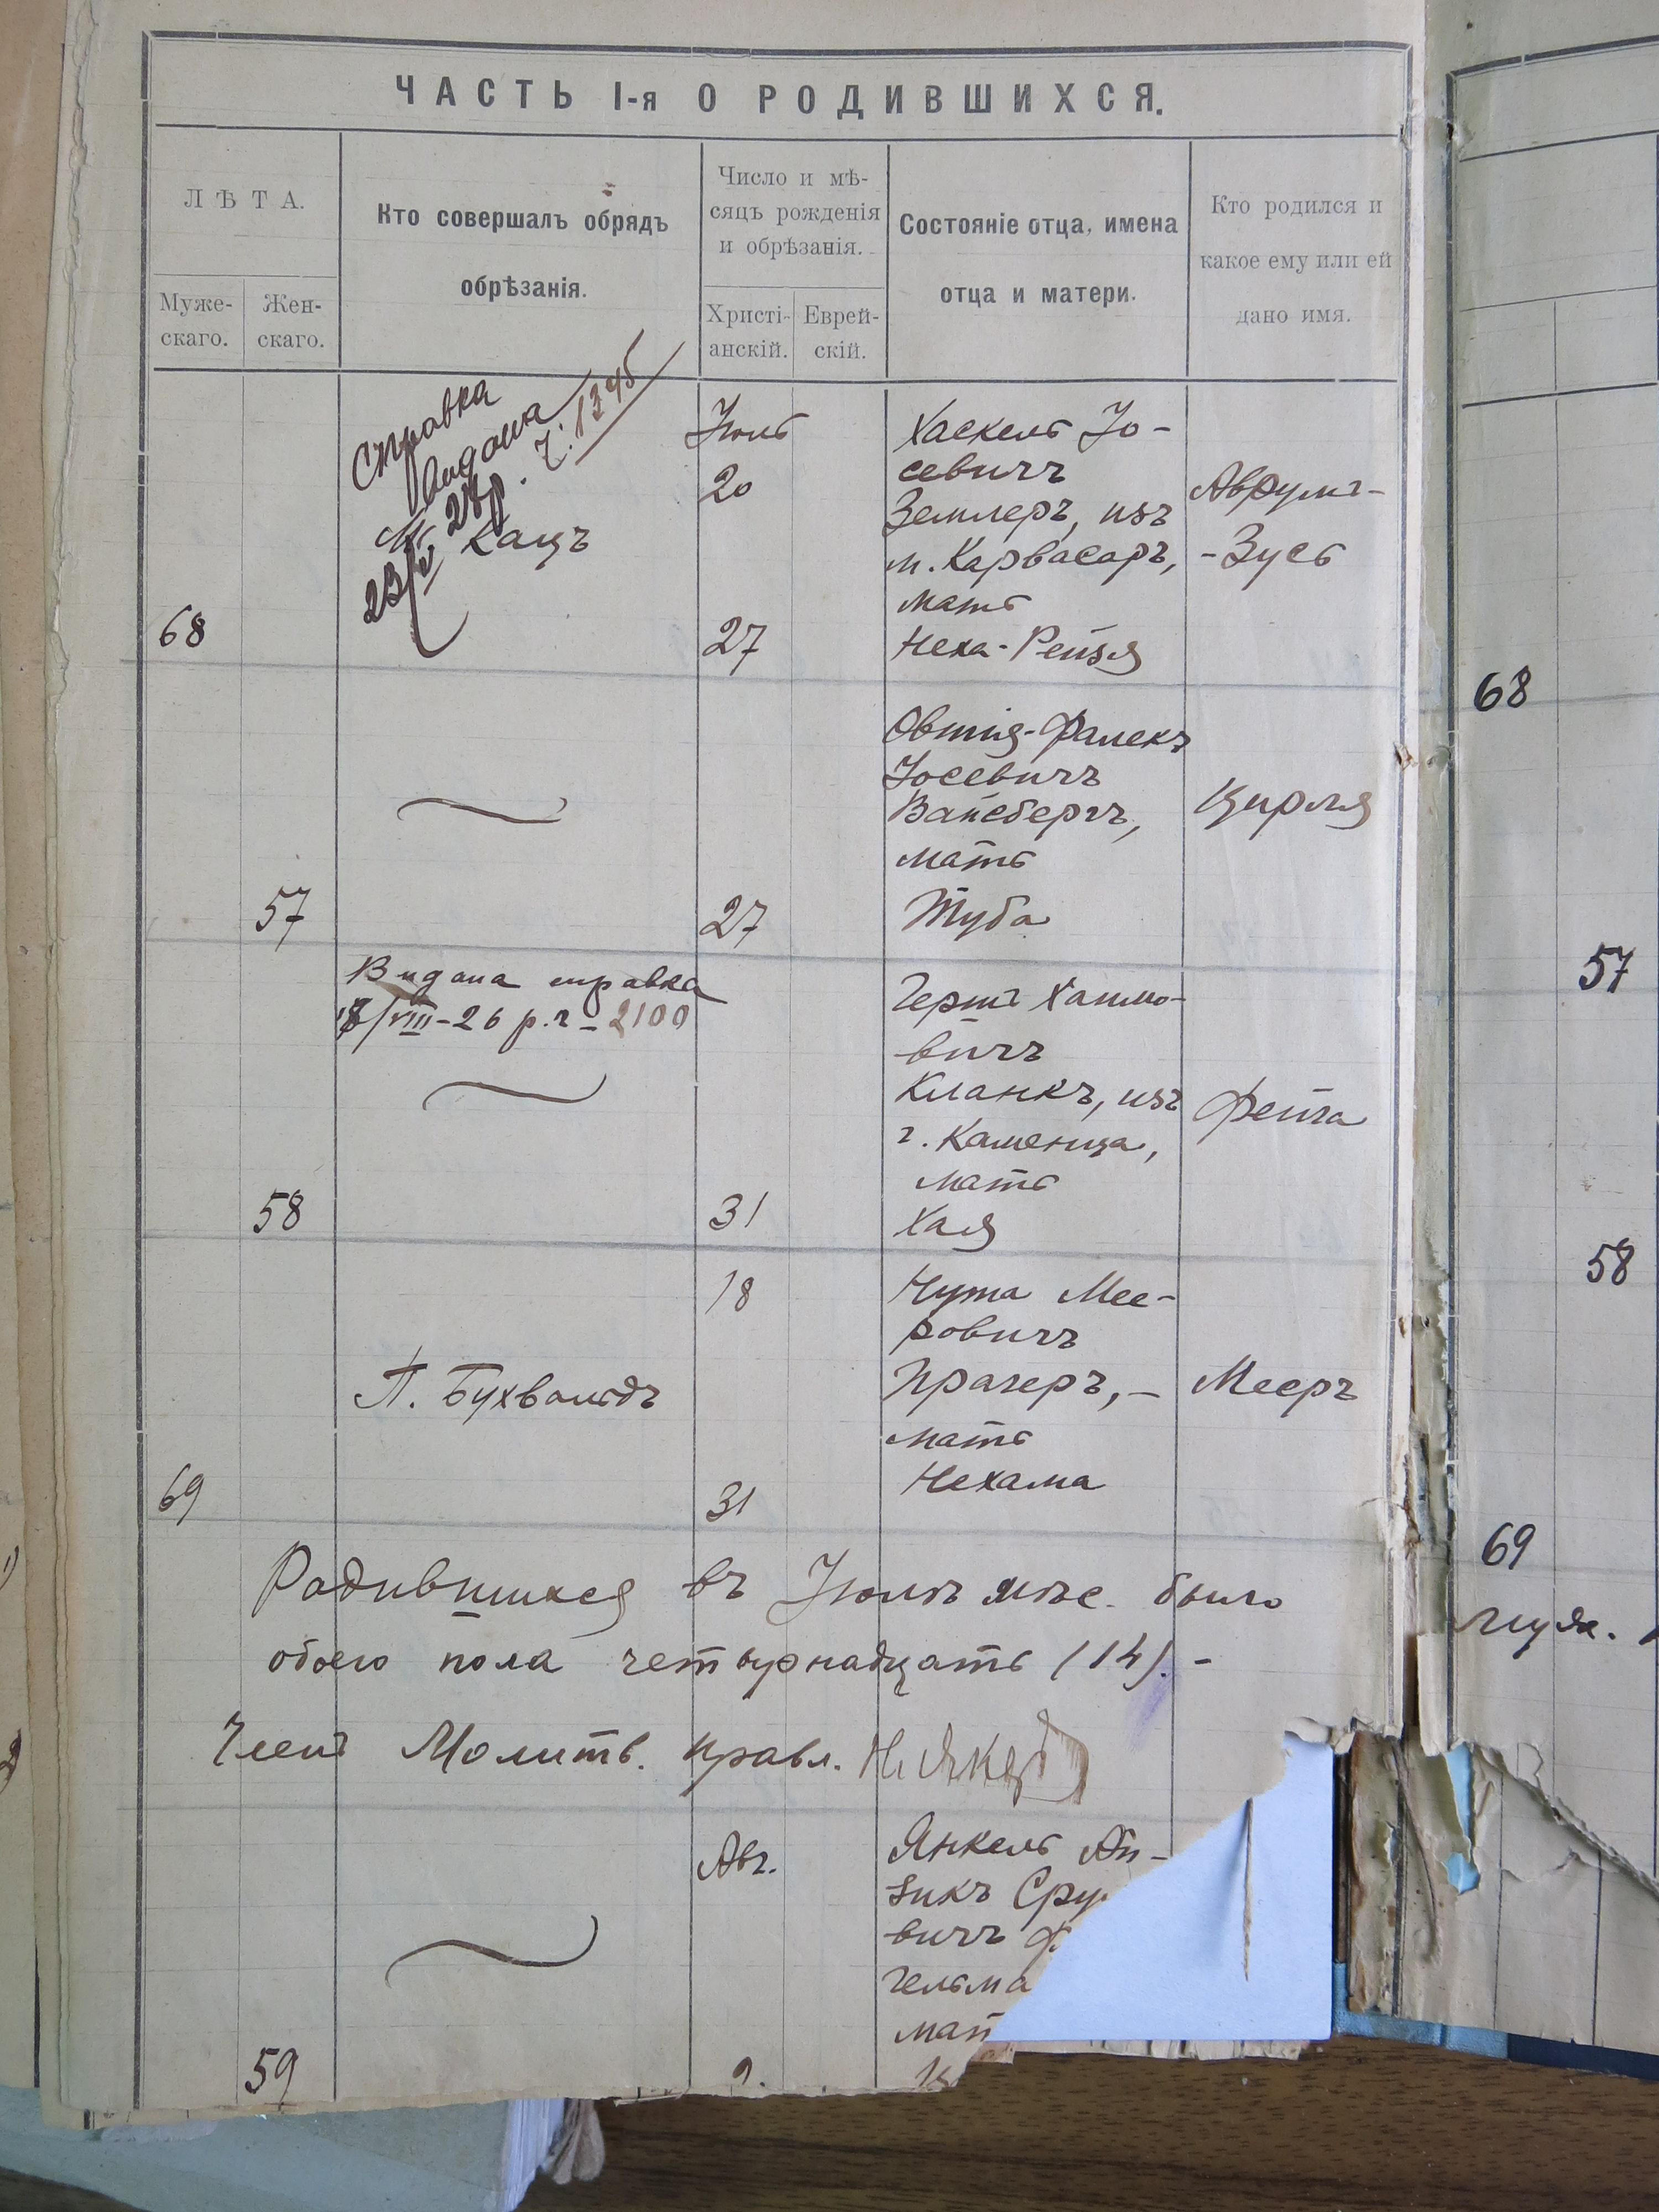 ЧАСТЬ I-я О РОДИВШИХСЯ.
ЛѢТА.
Муже-
скаго.
Жен-
скаго.
Кто совершалъ обрядъ
обрѣзанія.
Число и мѣ-
сяцъ рожденія
и обрѣзанія.
Христі-
анскій.
Еврей-
скій.
Состояніе отца, имена
отца и матери.
Кто родился и
какое ему или ей
дано имя.
68
Справка
видана
Кацъ
Іюль
20
27
Хаскель Іо-
севичъ
Землеръ, изъ
м. Карвасаръ,
мать
Неха-Рейзя
Аврумъ-
-Зусь
57
27
Овшія-Фалекъ
Іосевичъ
Вайсбергъ,
мать
Туба
Цирля
58
Видана справка
18/VIII-26 р. ч-2100
31
Гершъ Хаимо-
вичъ
Кланкъ, изъ
г. Каменца,
мать
Хая
Фейга
69
П. Бухвальдъ
18
31
Нута Мее-
ровичъ
Прагеръ,-
мать
Нехама
Мееръ
Родившихся въ Іюлѣ мѣс. было
обоего пола четырнадцать (14).-
Членъ Молитв. правл.
59
Авг.
Янкель Ай-
зикъ Сру
вичъ Ф
гельма
мат
68
57
58
69
муж.